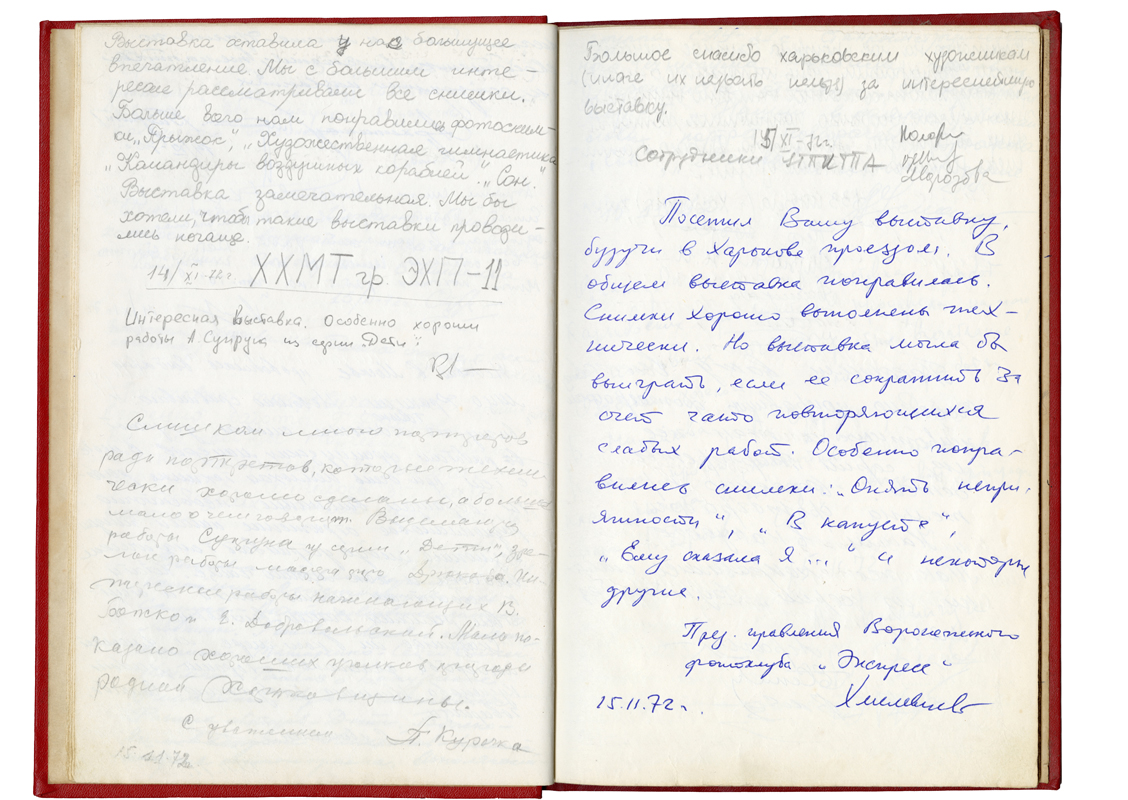 Выставка оставила у нас большущее
впечатление Мы с большим инте-
ресом рассматривали все снимки.
Больше всего нам понравились фотосним-
ки „Прыжок", „Художественная гимнастика
„Командиры воздушных кораблей". „Сон."
Выставка замечательная. Мы бы
хотели, чтобы такие выставки проводи-
лись почаще.
14/XI-72г. ХХМТ гр. ЭХП-11
Интересная выставка. Особенно хороши
работы А. Супруна из серии „Дети".
Слишком много портретов
ради портретов, которые техни
чески хорошо сделаны, а больше
мало о чем говорят. Выделил бы
работы Супруна у серии „Дети",
работы
работы начинающих В.
Е. Добровольский. Мало по-
казано хороших уголков природы
родной
С уважением А. Курочка
15.11.72
Большое спасибо харьковским художникам
(иначе их назвать нельзя) за интереснейшую
выставку.
15/XI-72г.
Сотрудники
Морозова
Посетил Вашу выставку,
будучи в Харькове проездом. В
общем выставка понравилась.
Снимки хорошо выполнены тех-
нически. Но выставка могла бы
выиграть, если ее сократить за
счет часто повторяющихся
слабых работ. Особенно понра-
вились снимки: „Опять непри-
ятности", „В капусте",
„Ему сказала я ..." и некоторые
другие.
През. правления Воронежского
фотоклуба „Экспресс"
15.11.72г.